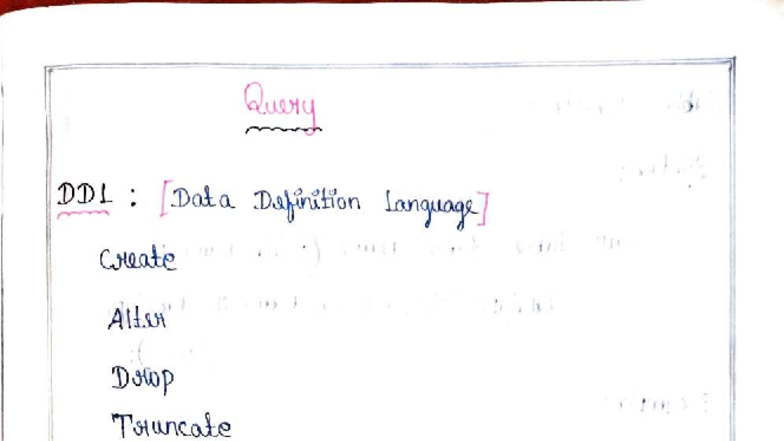 Query
DDL : [Data Definition Language]
Create
Alter
Drop
Truncate